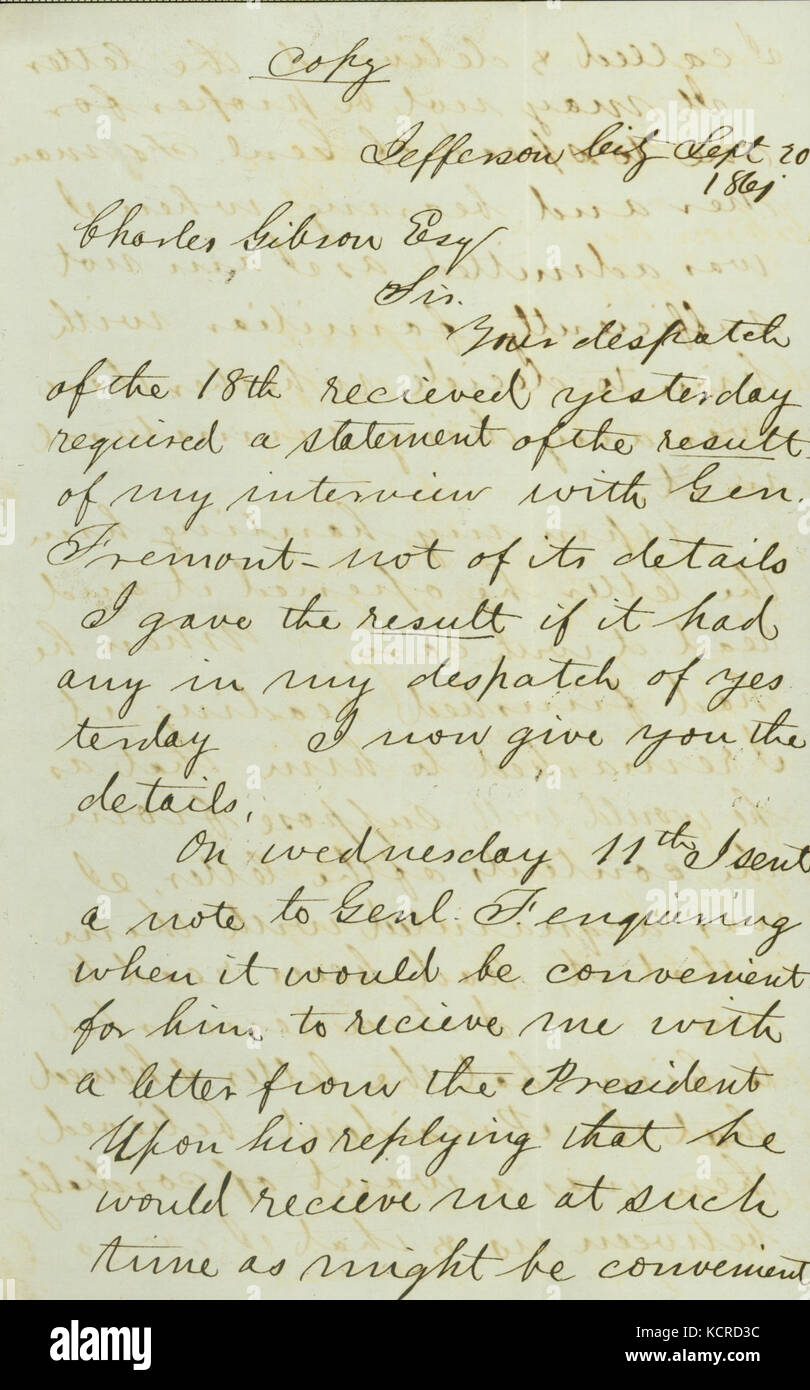 Copy
Jefferson City Sept 20
1861
Charles Gibson Esq
Sir.
Your despatch
of the 18th recieved yesterday
required a statement of the result
of my interview with Gen.
Fremont - not of its details
I gave the result if it had
any in my despatch of yes
terday I now give you the
details.
On wednesday 11th I sent
a note to Genl. F. enquiring
when it would be convenient
for him to recieve me with
a letter from the President
Upon his replying that he
would recieve me at such
time as might be convenient
alamy
Image ID: KCRD3C
www.alamy.com